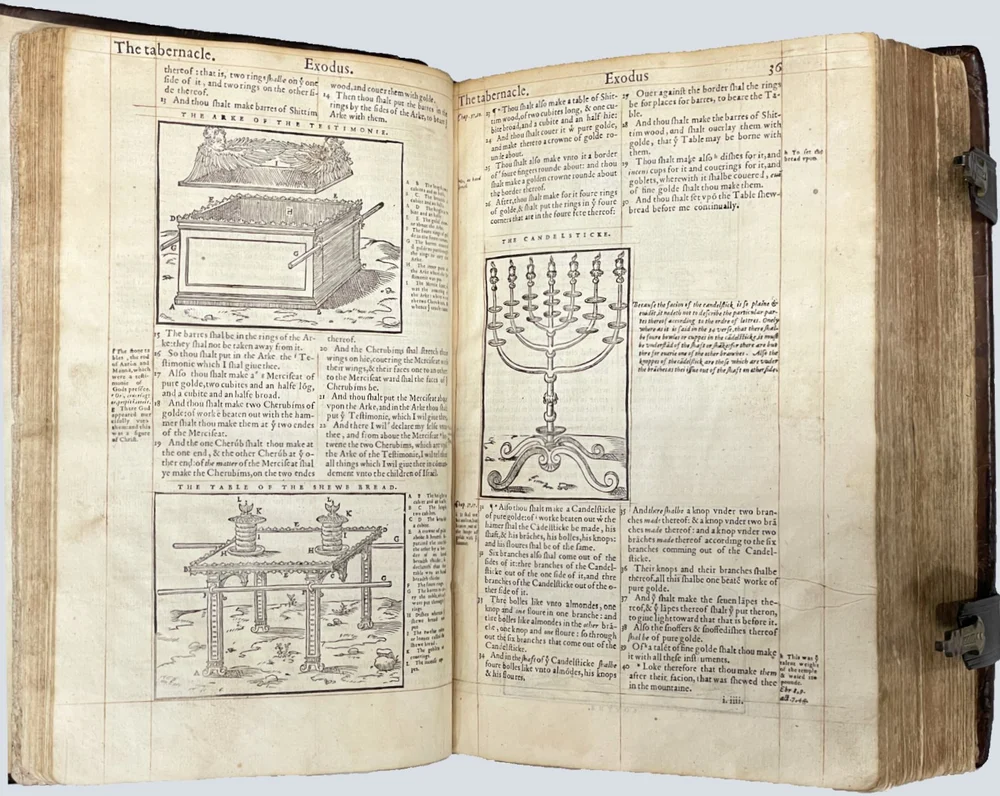 The tabernacle.
Exodus.
thereof: that is, two rings shalbe on ẏ one
side of it, and two rings on the other si-
de thereof.
13 And thou shalt make barres of Shittim
wood, and couer them with golde.
14 Then thou shalt put the barres in the
rings by the sides of the Arke, to beare
Arke with them.
THE ARKE OF THE TESTIMONIE.
15 The barres shal be in the rings of the Ar-
ke: they shal not be taken away from it.
16 So thou shalt put in the Arke the Te-
stimonie which I shal giue thee.
17 Also thou shalt make a Merciseat of
pure golde, two cubites and an halfe lōg,
and a cubite and an halfe broad.
18 And thou shalt make two Cherubims of
golde: of worke beaten out with the ham-
mer shalt thou make them at ẏ two endes
of the Merciseat.
19 And the one Cherub shalt thou make at
the one end, & the other Cherub at ẏ o-
ther end: of the matter of the Merciseat shal
ye make the Cherubims, on the two endes
thereof.
20 And the Cherubims shal stretch
wings on hie, couering the Merciseat with
their wings, & their faces one to an other
to the Merciseat ward shal the faces of
Cherubims be.
21 And thou shalt put the Merciseat
vpon the Arke, and in the Arke thou shalt
put ẏ Testimonie, which I wil giue thee,
22 And there I wil declare my selfe vnto
thee, and from aboue the Merciseat be-
twene the two Cherubims, which are vpō
the Arke of the Testimonie, I wil tel thee
all things which I wil giue thee in cōman-
dement vnto the children of Israel.
THE TABLE OF THE SHEWE BREAD.
The tabernacle.
Exodus
36
23 ¶ Thou shalt also make a table of Shit-
tim wood, of two cubites long, & one cu-
bite broad, and a cubite and an half hie:
24 And thou shalt couer it ẇ pure golde,
and make thereto a crowne of golde ro-
unde about.
25 Thou shalt also make vnto it a border
of foure fingers rounde about: and thou
shalt make a golden crowne rounde about
the border thereof.
26 After, thou shalt make for it foure rings
of golde, & shalt put the rings in ẏ foure
corners that are in the foure fete thereof:
27 Ouer against the border shal the rings
be for places for barres, to beare the Ta-
ble.
28 And thou shalt make the barres of Shit-
tim wood, and shalt ouerlay them with
golde, that ẏ Table may be borne with
them.
29 Thou shalt make also dishes for it, and
incens cups for it and couerings for it, and
goblets, wherewith it shalbe couered, euen
of fine golde shalt thou make them.
30 And thou shalt set vpō the Table shew-
bread before me continually.
h To set the
bread vpon
THE CANDELSTICKE.
Because the facion of the candelstick is so plaine &
euidēt, it nedeth not to describe the particular par-
tes thereof according to the ordre of lettres. Onely
where as it is said in the 34 verse, that there shalbe
foure bowles or cuppes in the cādelsticke, it must
be vnderstād of the shaft or shāke: for there are but
thre for euerie one of the other branches. Also the
knoppes of the cādelstick are those which are vnder
the brāches as thei issue out of the shaft on ether side.
31 ¶ Also thou shalt make a Candelsticke
of pure golde: of worke beaten out ẇ the
hammer shal the Cādelsticke be made, his
shaft, & his brāches, his bolles, his knops:
and his floures shal be of the same.
32 Six branches also shal come out of the
sides of it: thre branches of the Candel-
sticke out of the one side of it, and thre
branches of the Candelsticke out of the o-
ther side of it.
33 Thre bolles like vnto almondes, one
knop and one floure in one branche: and
thre bolles like almondes in the other brā-
che, one knop and one floure: so through
out the six branches that come out of the
Candelsticke.
34 And in the shaft of ẏ Candelsticke shalbe
foure bolles like vnto almōdes, his knops
& his floures.
35 And there shalbe a knop vnder two bran-
ches made thereof: & a knop vnder two brā
ches made thereof: and a knop vnder two
brāches made thereof according to the six
branches comming out of the Candel-
sticke.
36 Their knops and their branches shalbe
thereof. all this shalbe one beatē worke of
pure golde.
37 And ẏ shalt make the seuen lāpes the-
reof, & ẏ lāpes thereof shalt ẏ put theron,
to giue light toward that that is before it.
38 Also the snoffers & snoffedishes thereof
shal be of pure golde.
39 Of a talēt of fine golde shalt thou make
it with all these instruments.
40 Loke therefore that thou make them
after their facion, that was shewed thee
in the mountaine.
i. iiii.